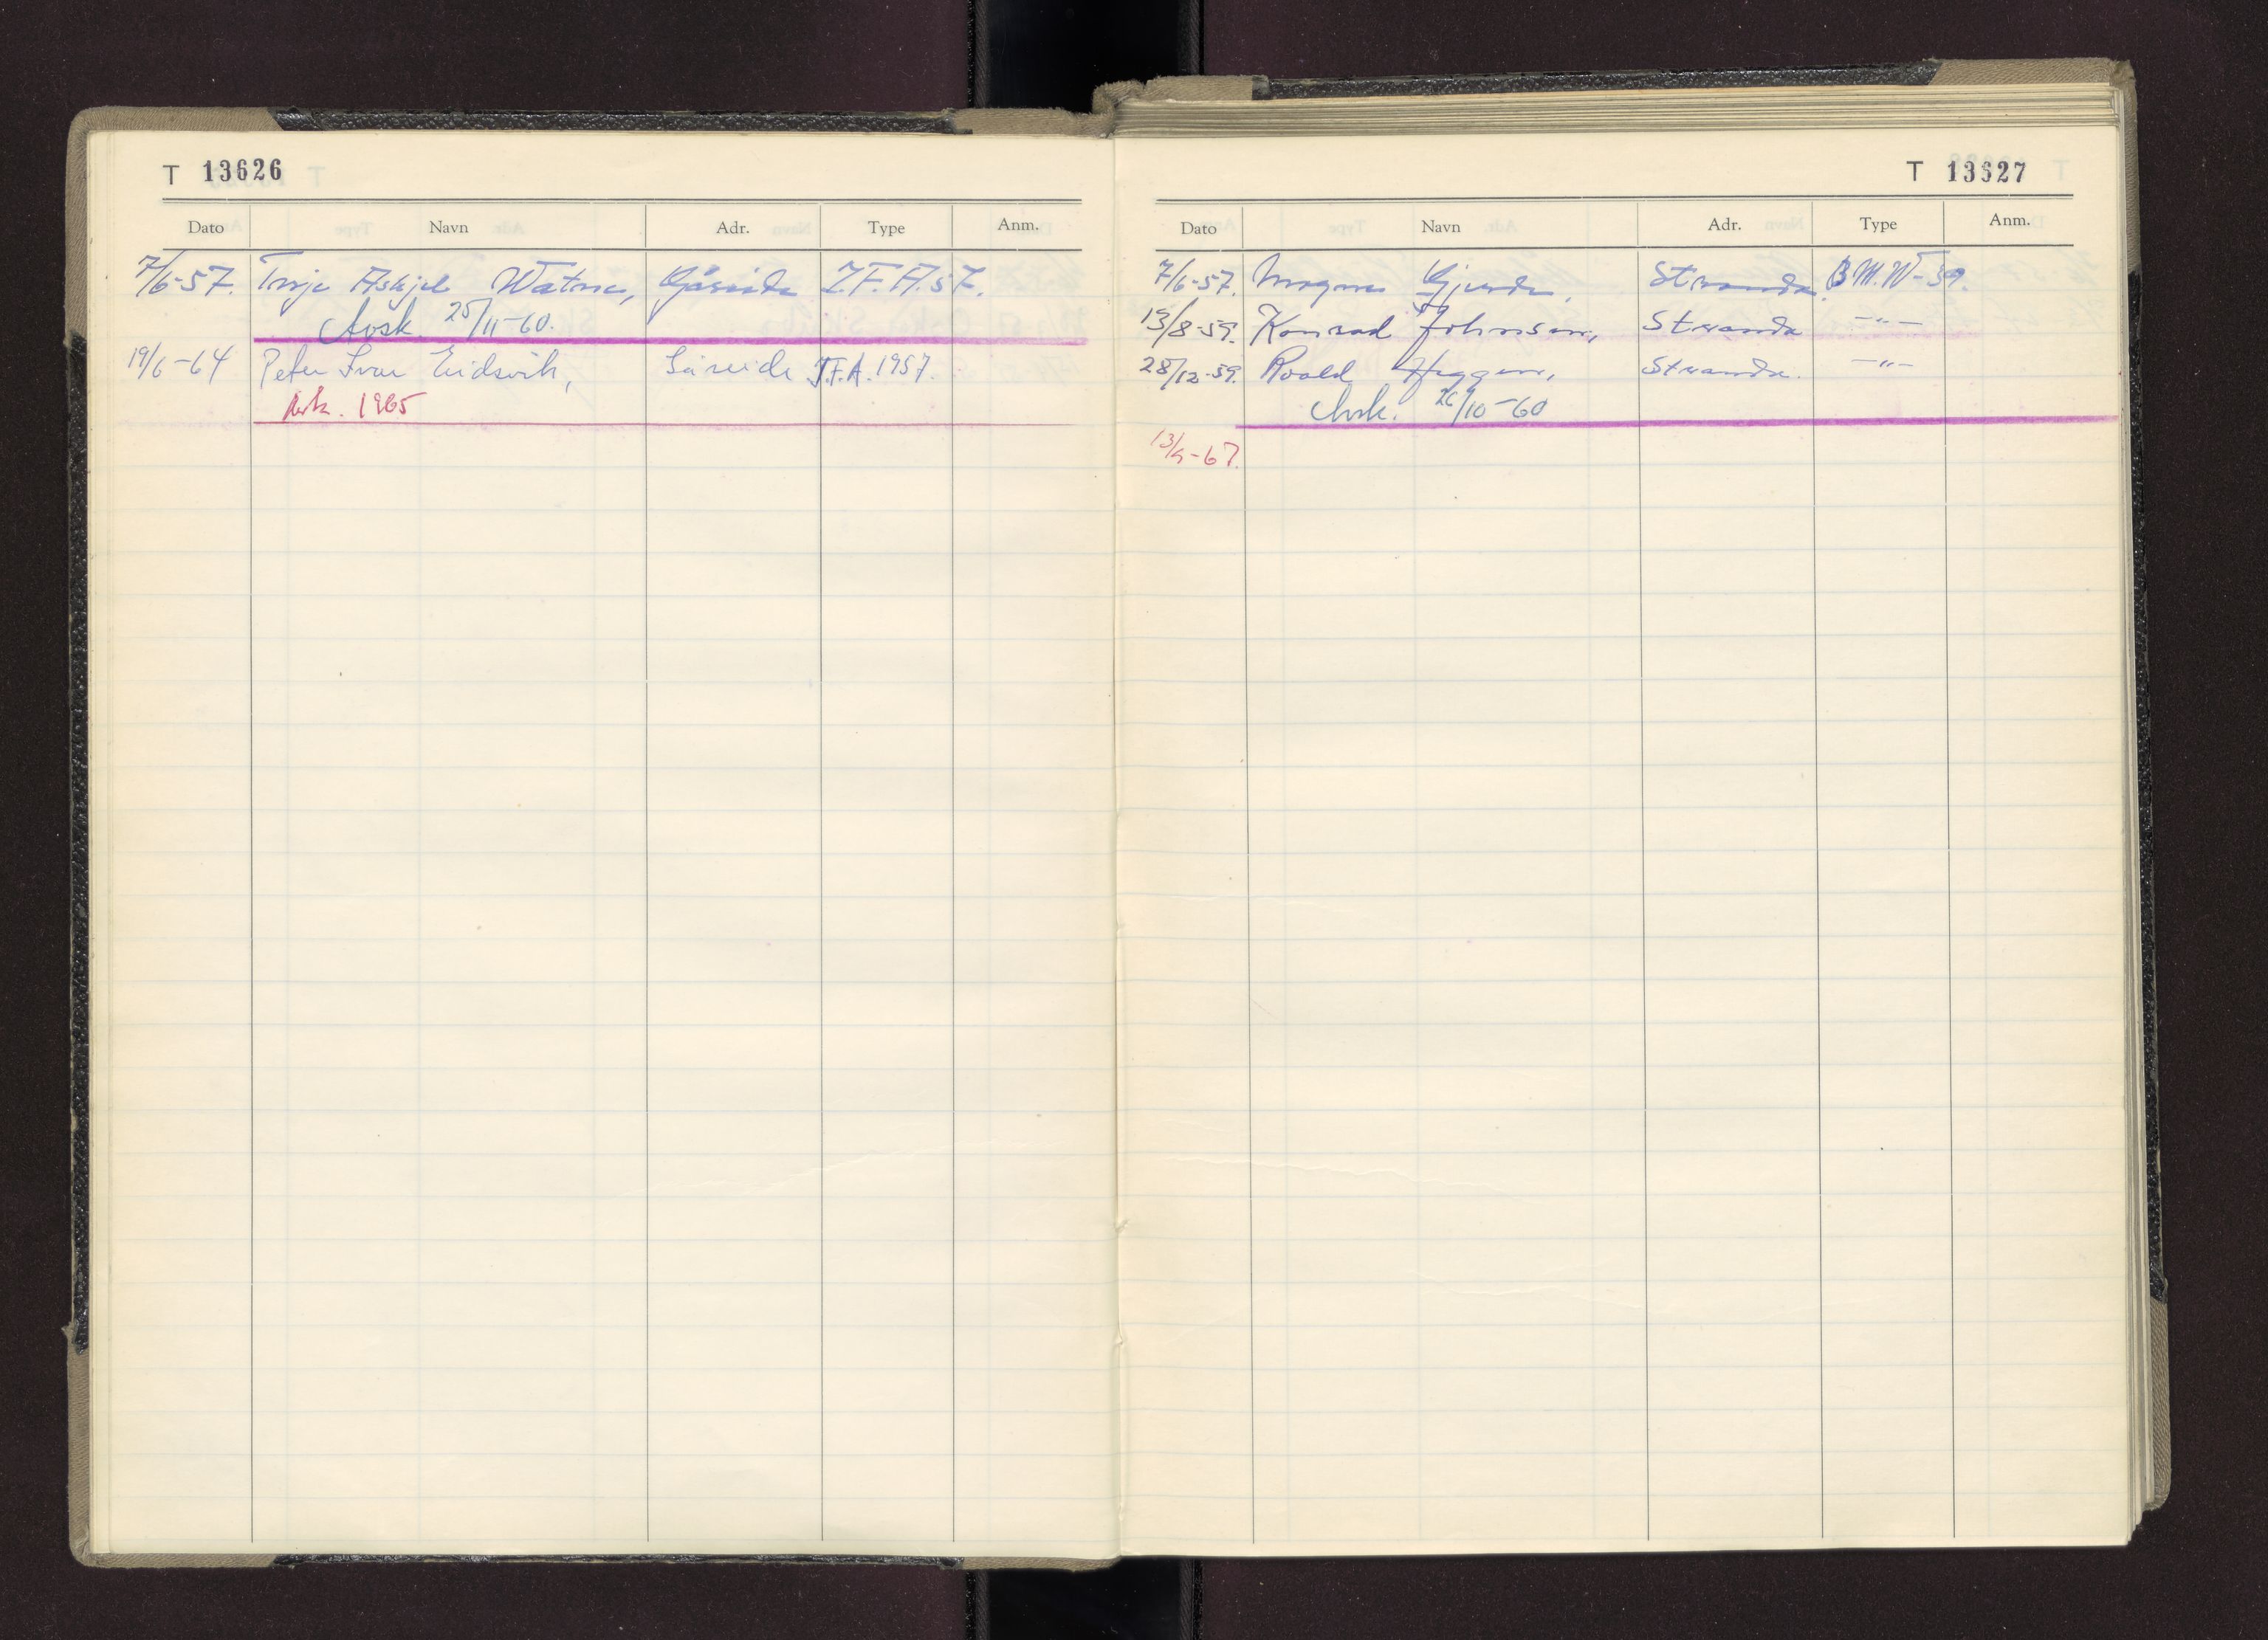 T 13626
Dato Navn Adr. Type Anm.
7/6-57. Terje Askjel Watne, Gåseide I.F.A. 57.
Avsk. 25/11-60.
19/6-64 Peter Ivar Eidsvik, Gåseide I.F.A. 1957.
Avsk. 1965
T 13627
Dato Navn Adr. Type Anm.
7/6-57. Magnus Gjerde, Stranda. B.M.W-39.
13/8-59. Konrad Johnsen, Stranda —"—
28/12-59. Roald Heggen, Stranda. —"—
Avsk. 26/10-60
13/9-67.